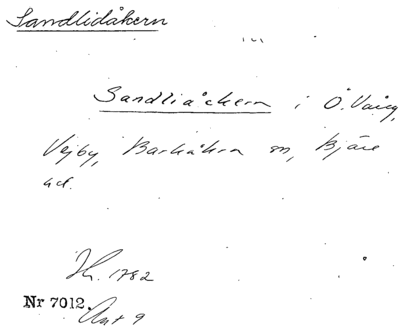 Sandlidåkern
Sandliåckern i Ö. Vång,
Vejby, Barkåkra sn, Bjäre
hd.
Jh. 1782
Nr 7012. Akt 9